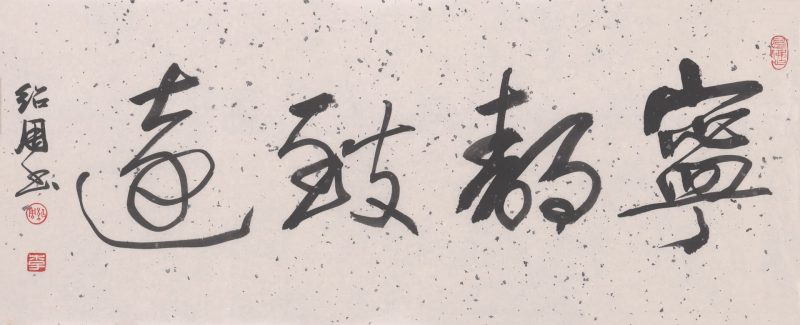 寧靜致遠
紹周书